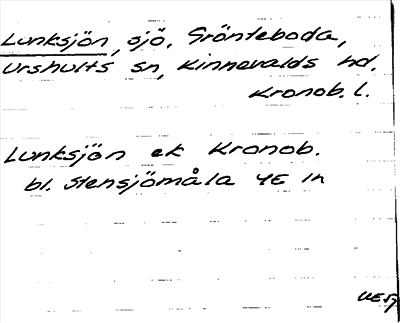 Lunksjön, sjö, Grönteboda,
Urshults sn, Kinnevalds hd.
Kronob. l.
Lunksjön ek Kronob.
bl. Stensjömåla 4E 1n